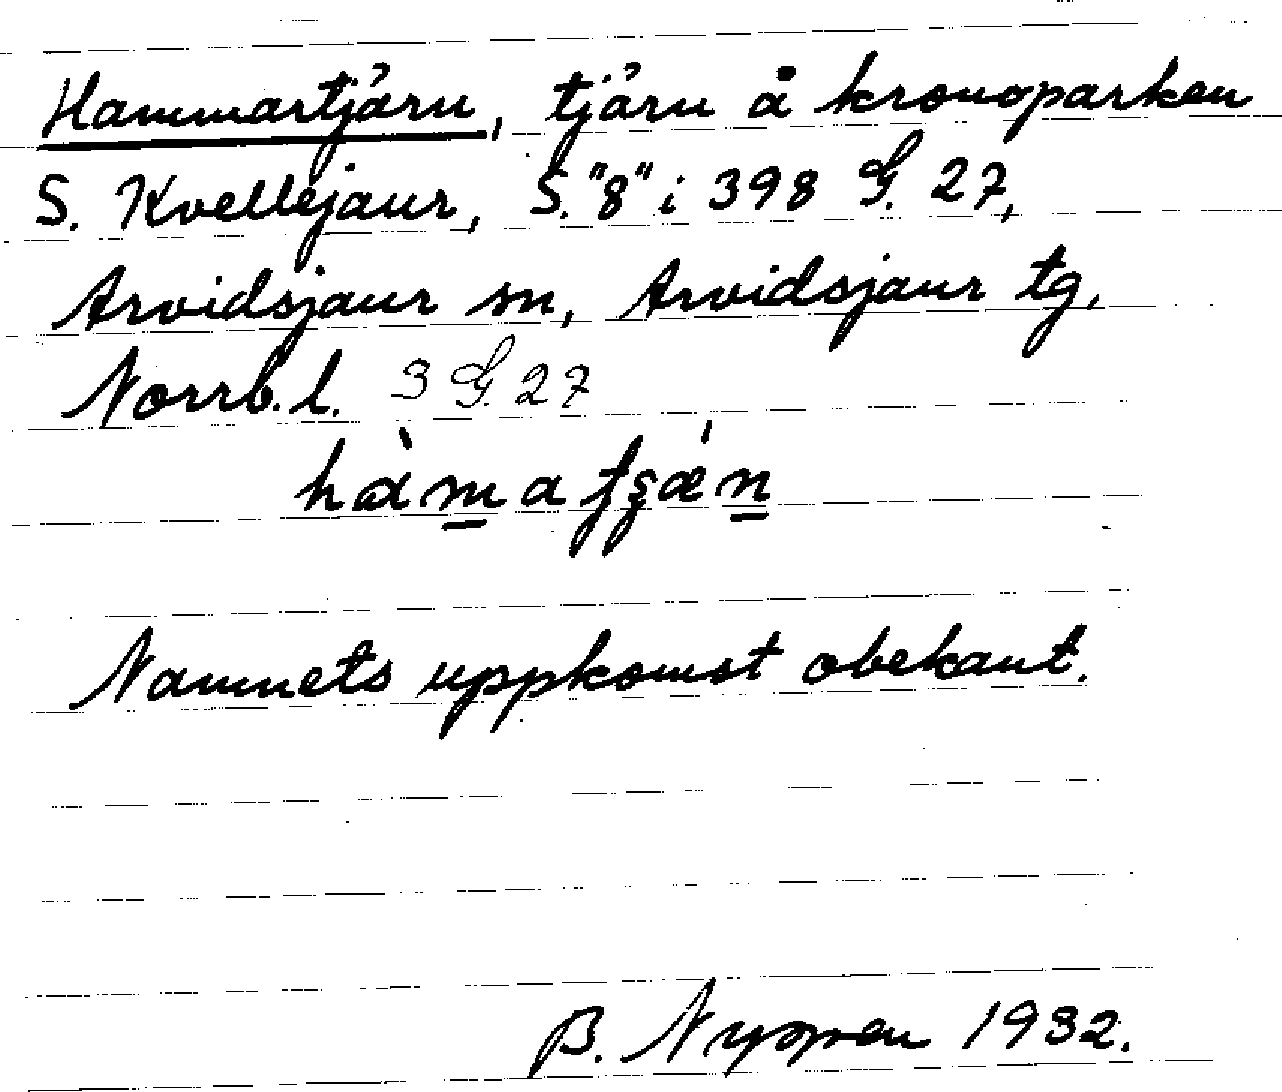 Hammartjärn, tjärn å kronoparken
S. Kvellejaur, S. "8" i 398 G. 27,
Arvidsjaur sn, Arvidsjaur tg,
Norrb. l. 3 G. 27
Namnets uppkomst obekant.
B. Nyppen 1932.